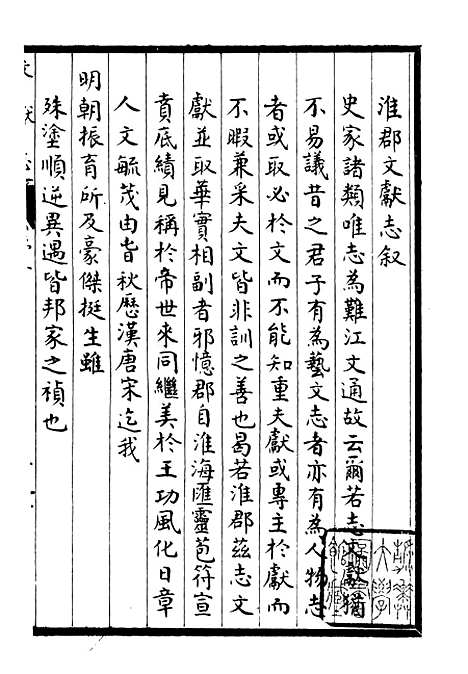 淮郡文獻志叙
史家諸類唯志為難江文通故云爾若志文獻猶
不易議昔之君子有為藝文志者亦有為人物志
者或取必於文而不能知重夫獻或專主於獻而
不暇兼采夫文皆非訓之善也曷若淮郡兹志文
獻並取華實相副者邪憶郡自淮海匯靈苞符宣
賁底績見稱於帝世來同繼美於王功風化日章
人文毓茂由春秋歷漢唐宋迄我
明朝振育所及豪傑挺生雖
殊塗順逆異遇皆邦家之禎也